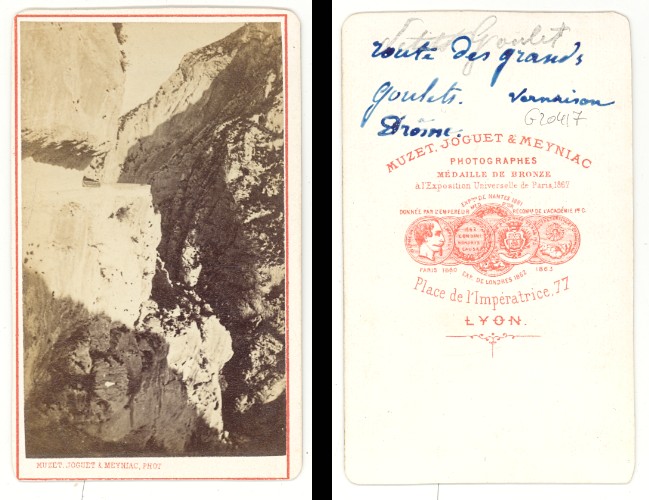 MUZET, JOGUET & MEYNIAC, PHOT
Goulet
route des grands
Goulets. Vernaison
G20417
Drôme.
MUZET, JOGUET & MEYNIAC
PHOTOGRAPHES
MÉDAILLE DE BRONZE
à l'Exposition Universelle de Paris, 1867
EXPTON DE NANTES 1861
DONNÉE PAR L'EMPEREUR
RÉCOMPSE DE L'ACADÉMIE IMP. G.
PARIS 1860
EXP. DE LONDRES 1862
1863
Place de l'Impératrice, 77
LYON.